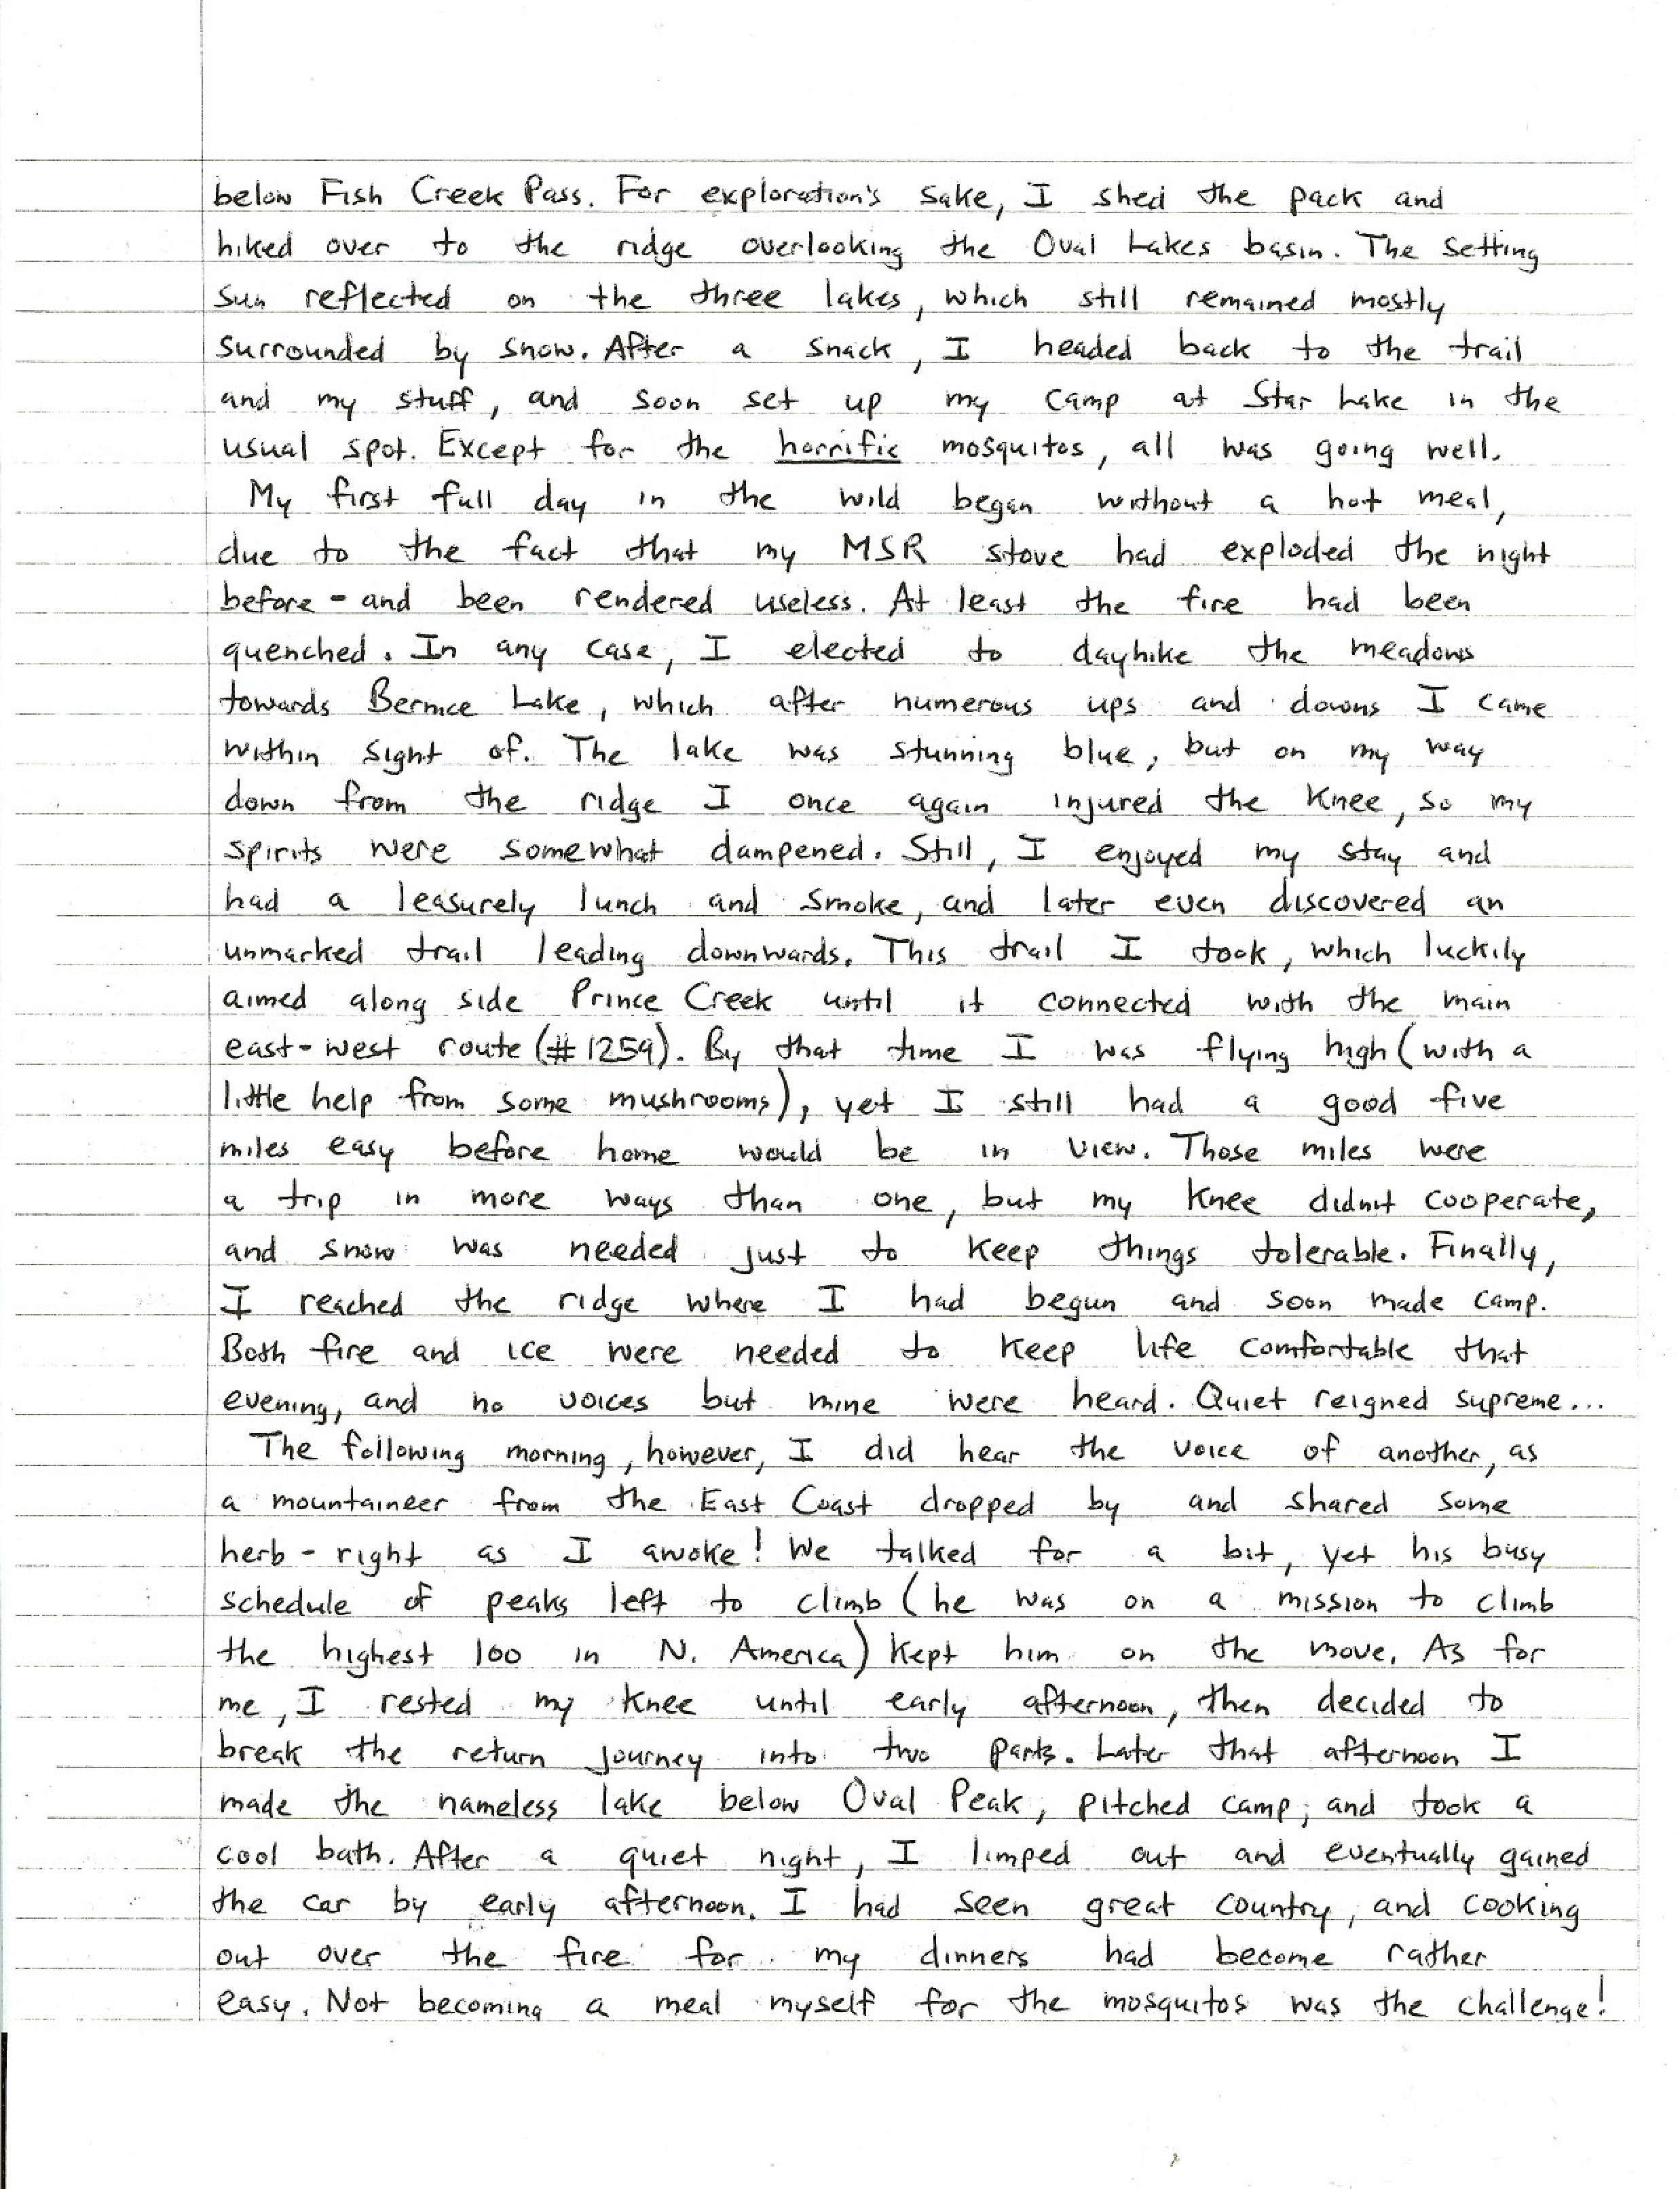 below Fish Creek Pass. For exploration's sake, I shed the pack and
hiked over to the ridge overlooking the Oval Lakes basin. The setting
sun reflected on the three lakes, which still remained mostly
surrounded by snow. After a snack, I headed back to the trail
and my stuff, and soon set up my camp at Star Lake in the
usual spot. Except for the horrific mosquitos, all was going well.
My first full day in the wild began without a hot meal,
due to the fact that my MSR stove had exploded the night
before - and been rendered useless. At least the fire had been
quenched. In any case, I elected to dayhike the meadows
towards Bernice Lake, which after numerous ups and downs I came
within sight of. The lake was stunning blue, but on my way
down from the ridge I once again injured the knee, so my
spirits were somewhat dampened. Still, I enjoyed my stay and
had a leasurely lunch and smoke, and later even discovered an
unmarked trail leading downwards. This trail I took, which luckily
aimed along side Prince Creek until it connected with the main
east-west route (#1259). By that time I was flying high (with a
little help from some mushrooms), yet I still had a good five
miles easy before home would be in view. Those miles were
a trip in more ways than one, but my knee didn't cooperate,
and snow was needed just to keep things tolerable. Finally,
I reached the ridge where I had begun and soon made camp.
Both fire and ice were needed to keep life comfortable that
evening, and no voices but mine were heard. Quiet reigned supreme...
The following morning, however, I did hear the voice of another, as
a mountaineer from the East Coast dropped by and shared some
herb - right as I awoke! We talked for a bit, yet his busy
schedule of peaks left to climb (he was on a mission to climb
the highest 100 in N. America) kept him on the move. As for
me, I rested my knee until early afternoon, then decided to
break the return journey into two parts. Later that afternoon I
made the nameless lake below Oval Peak, pitched camp, and took a
cool bath. After a quiet night, I limped out and eventually gained
the car by early afternoon. I had seen great country, and cooking
out over the fire for my dinners had become rather
easy. Not becoming a meal myself for the mosquitos was the challenge!